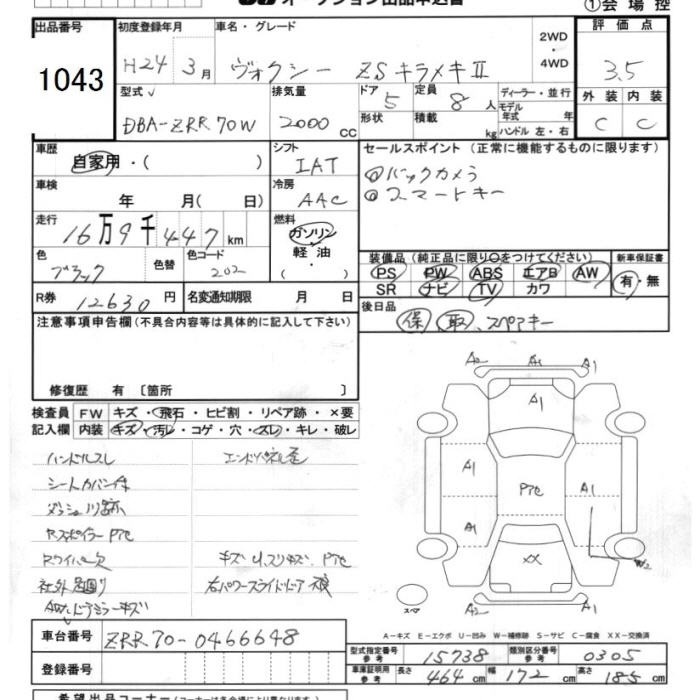 オークション出品申込書
①会場控
出品番号
1043
初度登録年月
H24年3月
車名・グレード
ヴォクシー ZS キラメキⅡ
2WD
・
4WD
評価点
3.5
外装 内装
C C
型式
DBA-ZRR70W
排気量
2000cc
ドア 5
形状
定員 8人
積載 kg
ディーラー・並行
モデル年式 年
ハンドル 左・右
車歴
自家用・( )
シフト
IAT
セールスポイント (正常に機能するものに限ります)
◎バックカメラ
◎スマートキー
車検
年 月(日)
冷房
AAC
走行
16万9千447km
燃料
ガソリン
軽油
・( )
色
ブラック
色替
色コード
202
装備品(純正品に限り○をつけてください)
PS PW ABS エアB AW
SR ナビ TV カワ
新車保証書
有・無
R券 12630円
名変通知期限 月 日
後日品
保 取 スペアキー
注意事項申告欄(不具合内容等は具体的に記入して下さい)
修復歴 有 〔箇所 〕
検査員記入欄
FW キズ・飛石・ヒビ割・リペア跡・×要
内装 キズ・汚レ・コゲ・穴・スレ・キレ・破レ
ハンドルスレ
エンドパネル歪
シートカバー付
Rスポイラー Pてc
Rワイパー欠
社外足廻り
AW、ドアミラーキズ
A2 A1 A1
A1
A1 Pてc A1
A1 A1
XX
W2
スペア
A2 A1
A-キズ E-エクボ U-凹み W-補修跡 S-サビ C-腐食 XX-交換済
車台番号
ZRR70-0466648
登録番号
型式指定番号 参考 15738
類別区分番号 参考 0305
車庫証明用 参考 長さ 464cm 幅 172cm 高さ 185cm
希望出品コーナー